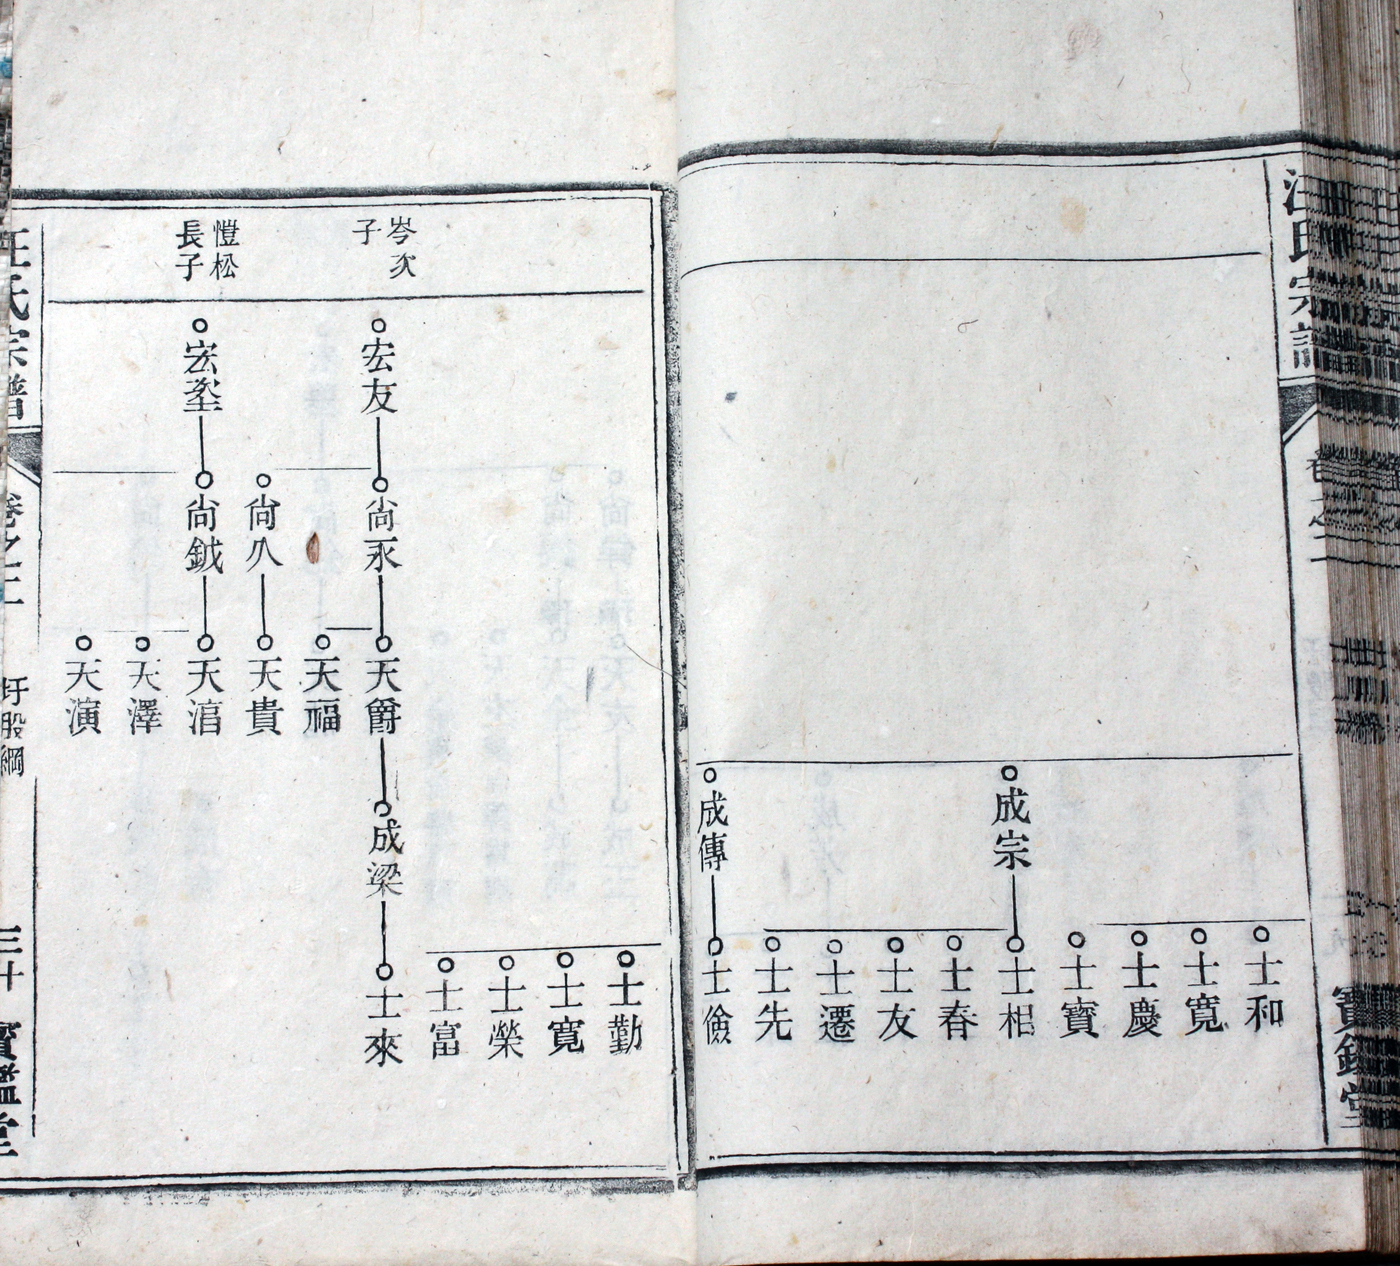 汪氏宗譜
卷之二
寶鑑堂
士和
士寬
士慶
士寶
成宗
士相
士春
士友
士遷
士先
成傳
士儉
士勤
士寬
士榮
士富
岑次
子
宏友
尙永
天爵
成梁
士來
天福
尙八
天貴
愷松
長子
宏垄
尙鉞
天涓
天澤
天演
汪氏宗譜
卷之二
圩股綱
三十
寶鑑堂